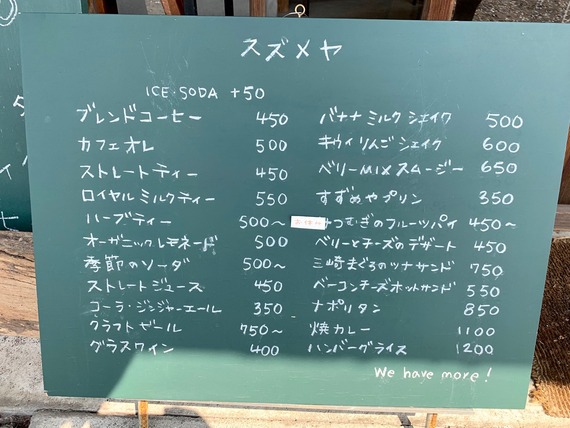 スズメヤ
ICE・SODA +50
ブレンドコーヒー 450
カフェオレ 500
ストレートティー 450
ロイヤルミルクティー 550
ハーブティー 500〜
オーガニックレモネード 500
季節のソーダ 500〜
ストレートジュース 450
コーラ・ジンジャーエール 350
クラフトビール 750〜
グラスワイン 400
バナナミルクシェイク 500
キウイりんごシェイク 600
ベリーMIXスムージー 650
すずめやプリン 350
つむぎのフルーツパイ 450〜
ベリーとチーズのデザート 450
三崎まぐろのツナサンド 750
ベーコンチーズホットサンド 550
ナポリタン 850
焼カレー 1100
ハンバーグライス 1200
We have more!